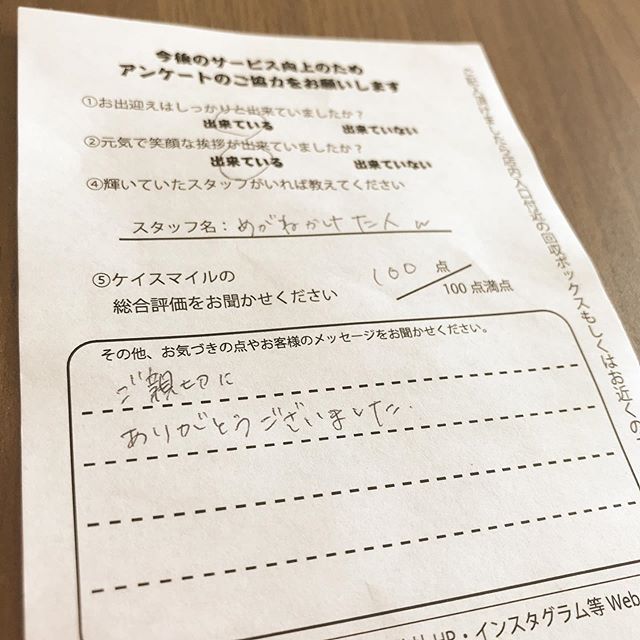 今後のサービス向上のため
アンケートのご協力をお願いします
①お出迎えはしっかりと出来ていましたか?
出来ている 出来ていない
②元気で笑顔な挨拶が出来ていましたか?
出来ている 出来ていない
④輝いていたスタッフがいれば教えてください
スタッフ名：めがねかけた人w
⑤ケイスマイルの
総合評価をお聞かせください
100 点
100点満点
その他、お気づきの点やお客様のメッセージをお聞かせください。
ご親切に
ありがとうございました.
HP・インスタグラム等 Web
入口付近の回収ボックスもしくはお近くの